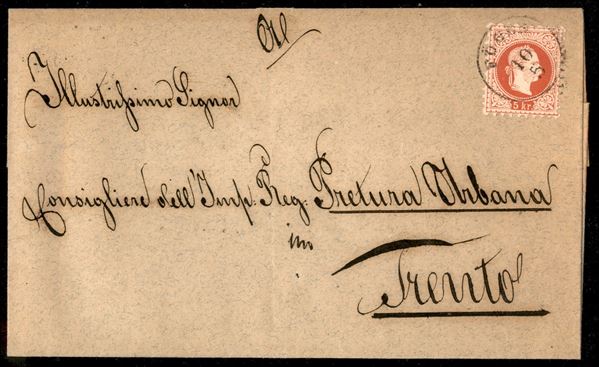 Al
Illustrissimo Signor
Consigliere dell'Imp. Reg. Pretura Urbana
in
Trento
10
5
5 kr.